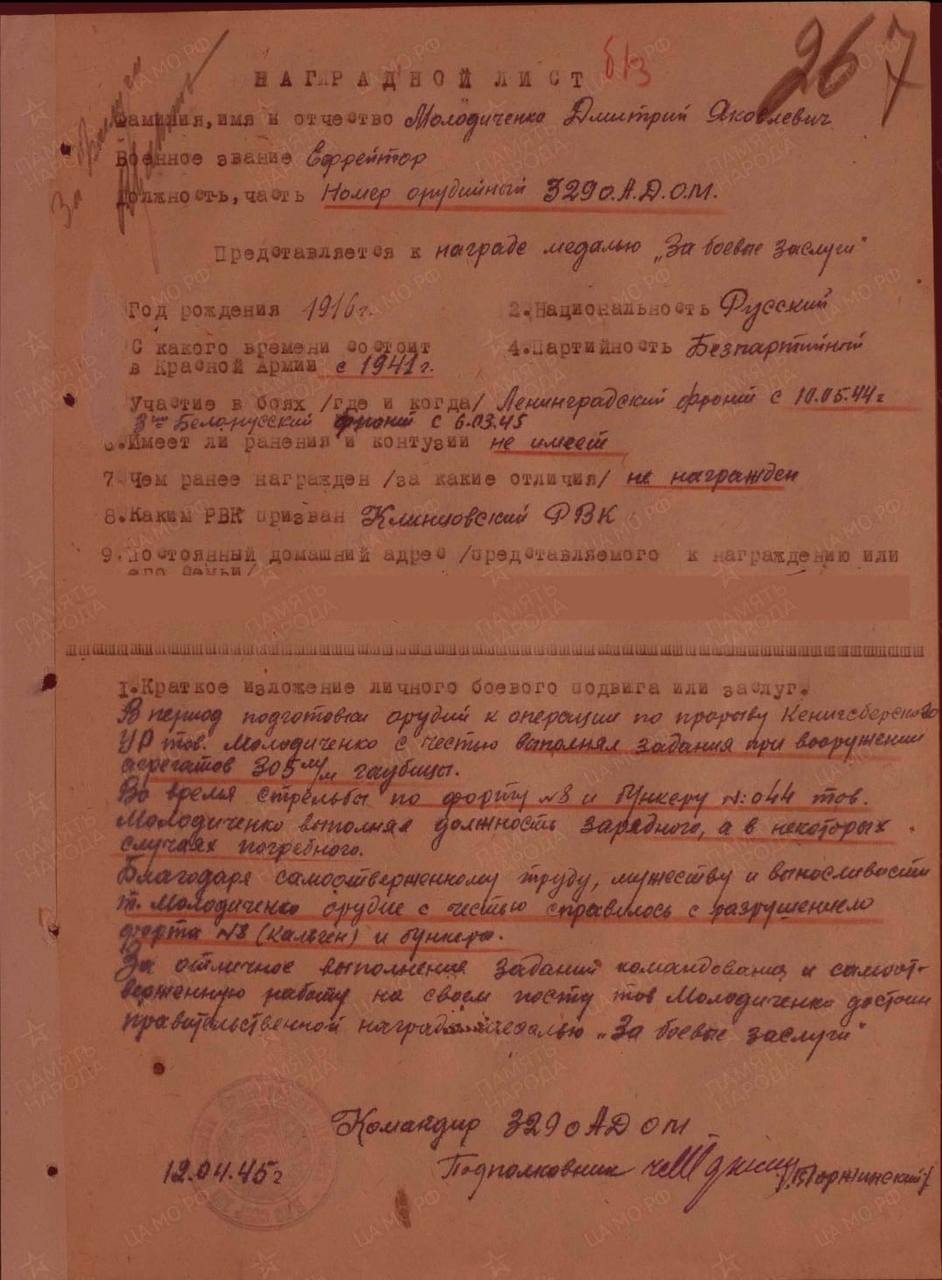 267
б/з
НАГРАДНОЙ ЛИСТ
За
Фамилия, имя и отчество Молодиченко Дмитрий Яковлевич
Военное звание Ефрейтор
Должность, часть Номер орудийный 329 О.А.Д.О.М.
Представляется к награде медалью „За боевые заслуги"
Год рождения 1916 г. 2.Национальность Русский
С какого времени состоит 4.Партийность Безпартийный
в Красной Армии с 1941 г.
Участие в боях /где и когда/ Ленинградский фронт с 10.05.44 г
3й Белорусский фронт с 6.03.45
6.Имеет ли ранения и контузии не имеет
7.Чем ранее награжден /за какие отличия/ не награжден
8.Каким РВК призван Клинцовский РВК
9.Постоянный домашний адрес /представляемого к награждению или
его семьи/
I.Краткое изложение личного боевого подвига или заслуг.
В период подготовки орудий к операции по прорыву Кенигсбергского
УР тов. Молодиченко с честью выполнял задания при вооружении
агрегатов 305 м/м гаубицы.
Во время стрельбы по форту №8 и бункеру №:044 тов.
Молодиченко выполняя должность зарядного, а в некоторых
случаях погребного.
Благодаря самоотверженному труду, мужеству и выносливости
т. Молодиченко орудие с честью справилось с разрушением
форта №8 (Кальген) и бункера.
За отличное выполнение заданий командования и самоот-
верженную работу на своем посту тов Молодиченко достоин
правительственной награды медалью „За боевые заслуги"
Командир 329 ОАДОМ
12.04.45 г Подполковник
ПАМЯТЬ НАРОДА
ЦА МО РФ